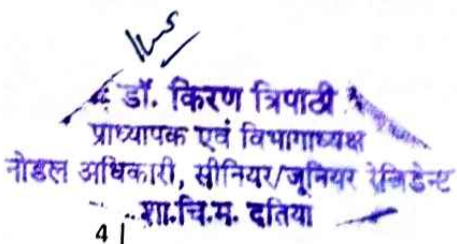 डॉ. किरण त्रिपाठी
प्राध्यापक एवं विभागाध्यक्ष
नोडल अधिकारी, सीनियर/जूनियर रेजिडेन्ट
शा.चि.म. दतिया
4